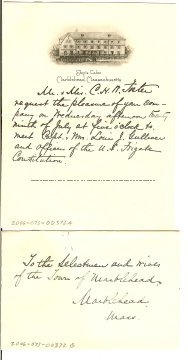 Marblehead, Massachusetts
Mr. & Mrs. C. H. W. Foster
request the pleasure of your com-
pany on Wednesday afternoon twenty
ninth of July at five o'clock to
meet Com. & Mrs. Louis J. Gulliver
and officers of the U.S. Frigate
Constitution.
To the Selectmen and wives
of the Town of Marblehead
Marblehead
Mass.